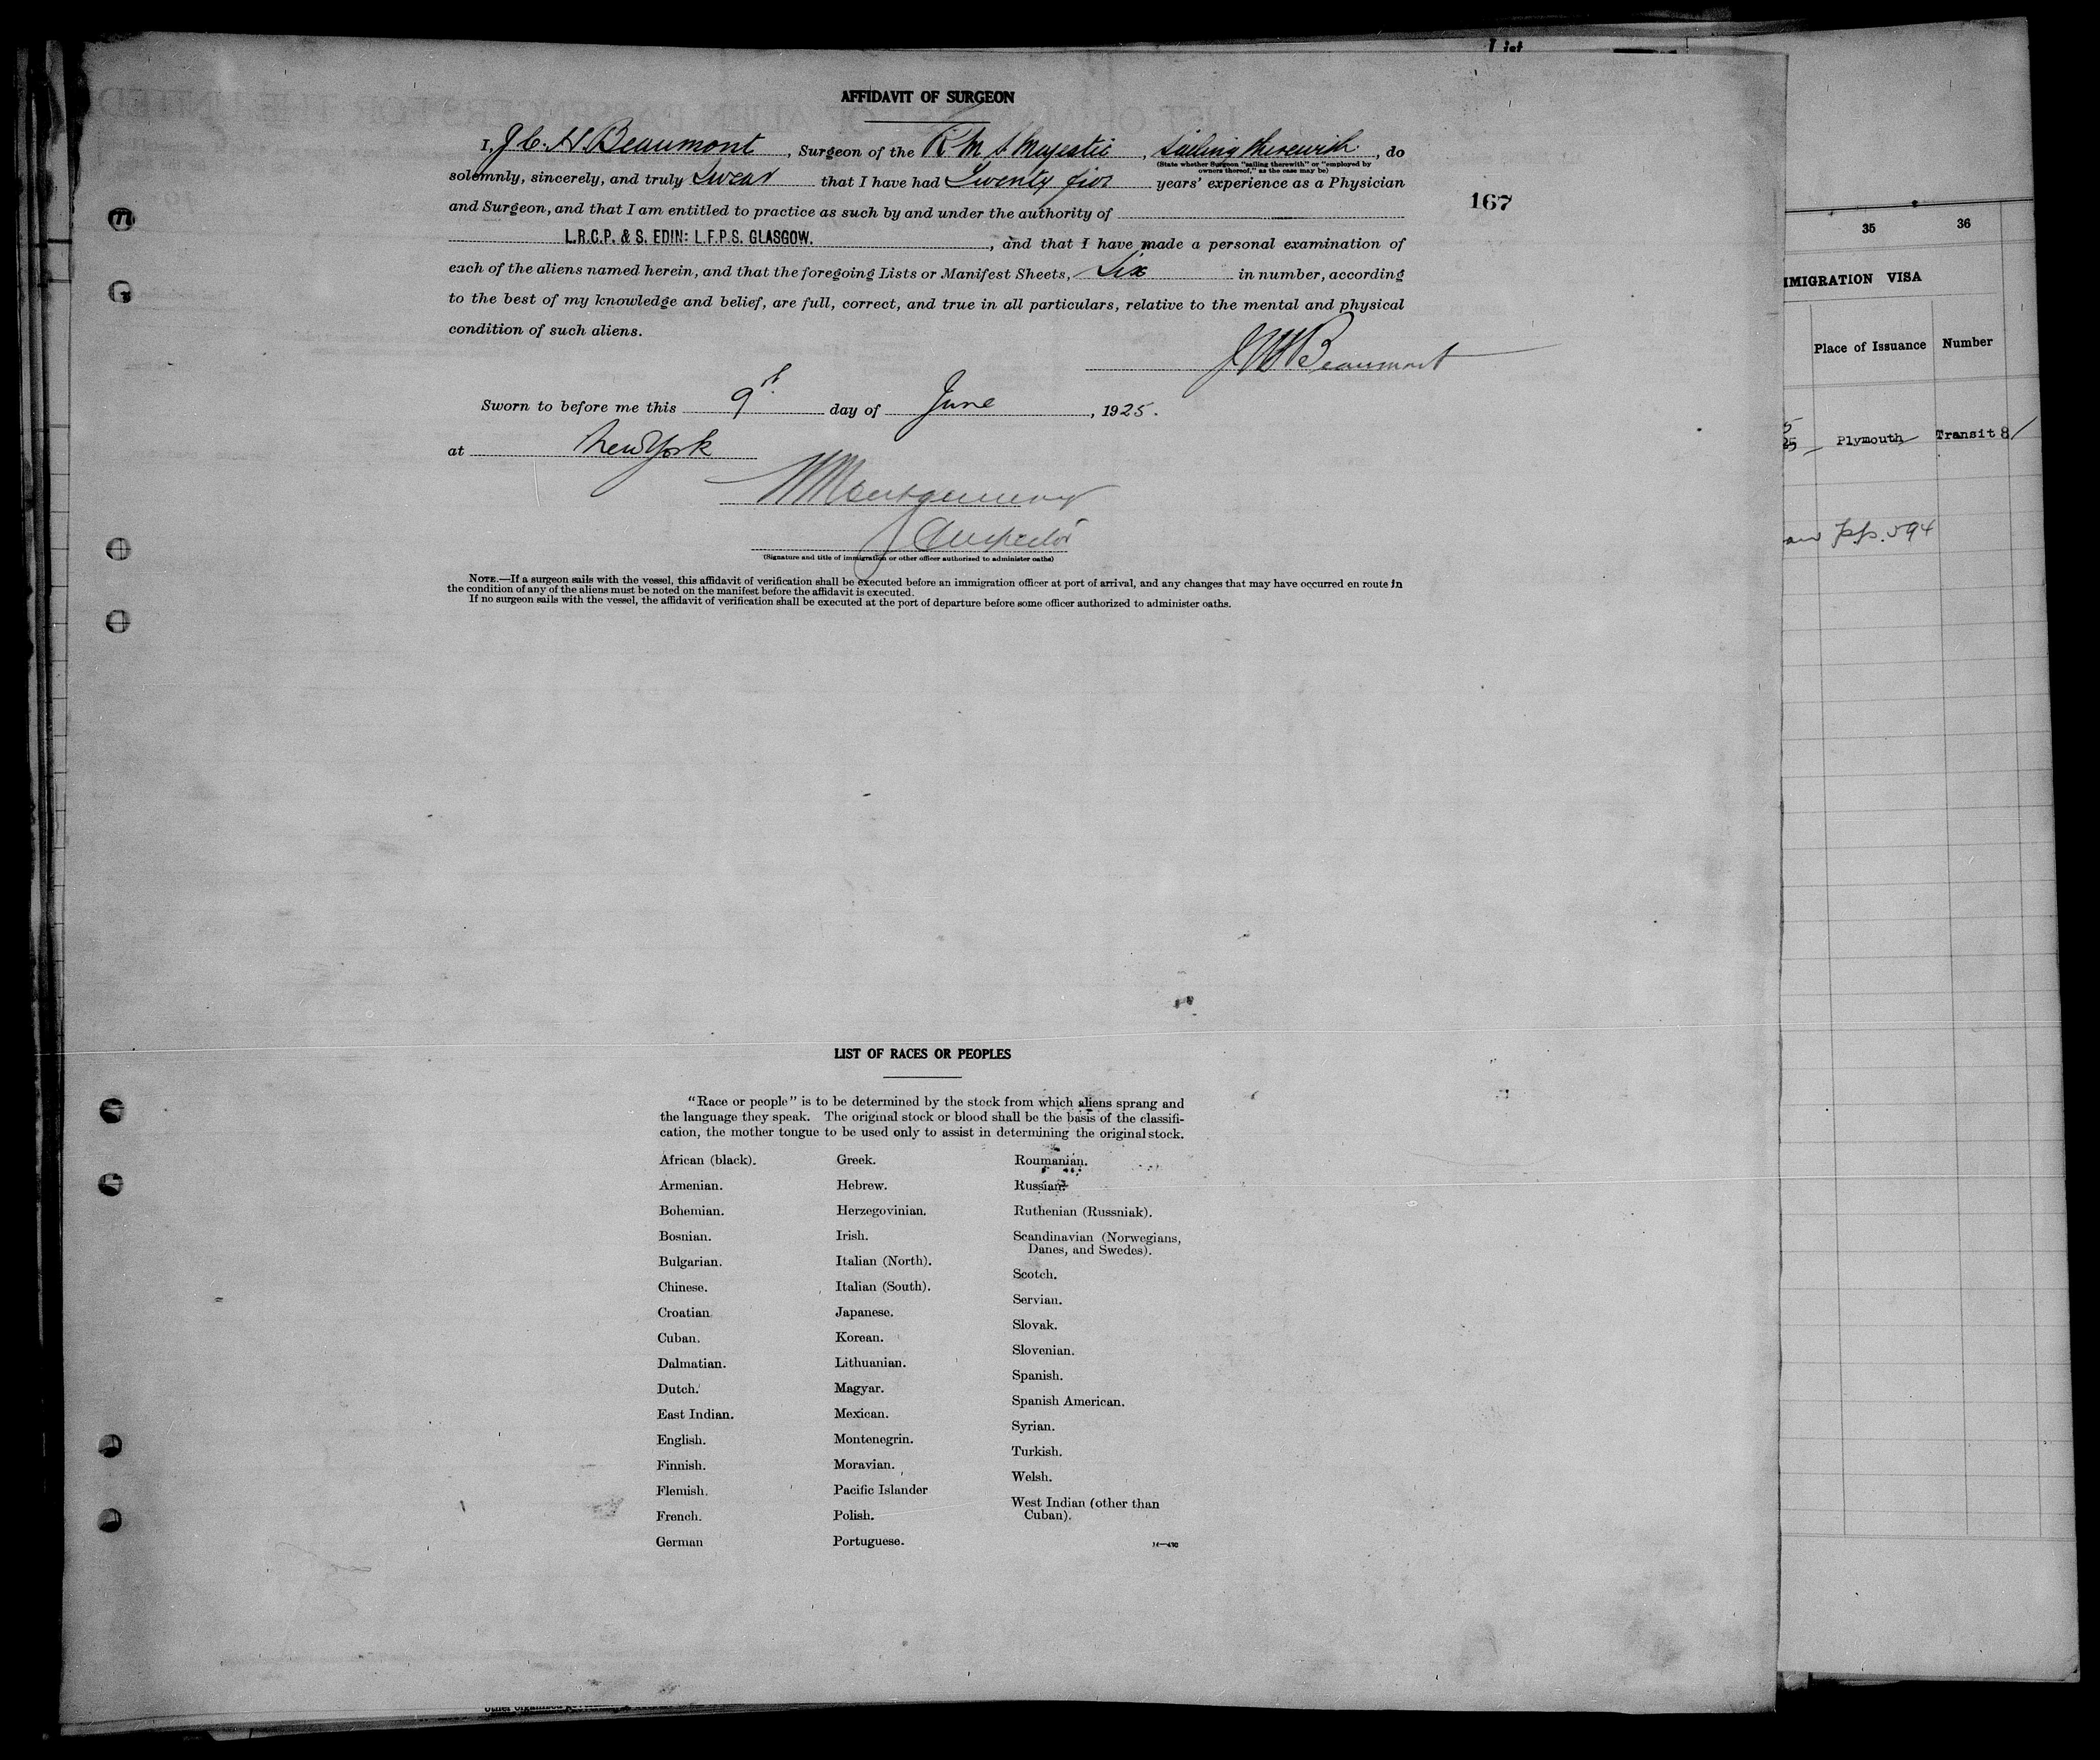 List
AFFIDAVIT OF SURGEON
I, J C. H Beaumont, Surgeon of the R M S Majestic, Sailing therewith, do
(State whether Surgeon "sailing therewith" or "employed by
owners thereof," as the case may be)
solemnly, sincerely, and truly Swear that I have had Twenty five years' experience as a Physician
167
and Surgeon, and that I am entitled to practice as such by and under the authority of
L.R.C.P. & S. EDIN: L.F.P.S. GLASGOW. , and that I have made a personal examination of
each of the aliens named herein, and that the foregoing Lists or Manifest Sheets, Six in number, according
to the best of my knowledge and belief, are full, correct, and true in all particulars, relative to the mental and physical
condition of such aliens.
J C H Beaumont
Sworn to before me this 9th day of June, 1925.
at New York
Montgomery
Inspector
(Signature and title of immigration or other officer authorized to administer oaths)
NOTE.—If a surgeon sails with the vessel, this affidavit of verification shall be executed before an immigration officer at port of arrival, and any changes that may have occurred en route in
the condition of any of the aliens must be noted on the manifest before the affidavit is executed.
If no surgeon sails with the vessel, the affidavit of verification shall be executed at the port of departure before some officer authorized to administer oaths.
LIST OF RACES OR PEOPLES
"Race or people" is to be determined by the stock from which aliens sprang and
the language they speak. The original stock or blood shall be the basis of the classifi-
cation, the mother tongue to be used only to assist in determining the original stock.
African (black).
Armenian.
Bohemian.
Bosnian.
Bulgarian.
Chinese.
Croatian
Cuban.
Dalmatian.
Dutch.
East Indian.
English.
Finnish.
Flemish.
French.
German
Greek.
Hebrew.
Herzegovinian.
Irish.
Italian (North).
Italian (South).
Japanese.
Korean.
Lithuanian.
Magyar.
Mexican.
Montenegrin.
Moravian.
Pacific Islander
Polish.
Portuguese.
Roumanian.
Russian.
Ruthenian (Russniak).
Scandinavian (Norwegians,
Danes, and Swedes).
Scotch.
Servian.
Slovak.
Slovenian.
Spanish.
Spanish American.
Syrian.
Turkish.
Welsh.
West Indian (other than
Cuban).
35 36
IMMIGRATION VISA
Place of Issuance Number
25 Plymouth Transit 8/
594